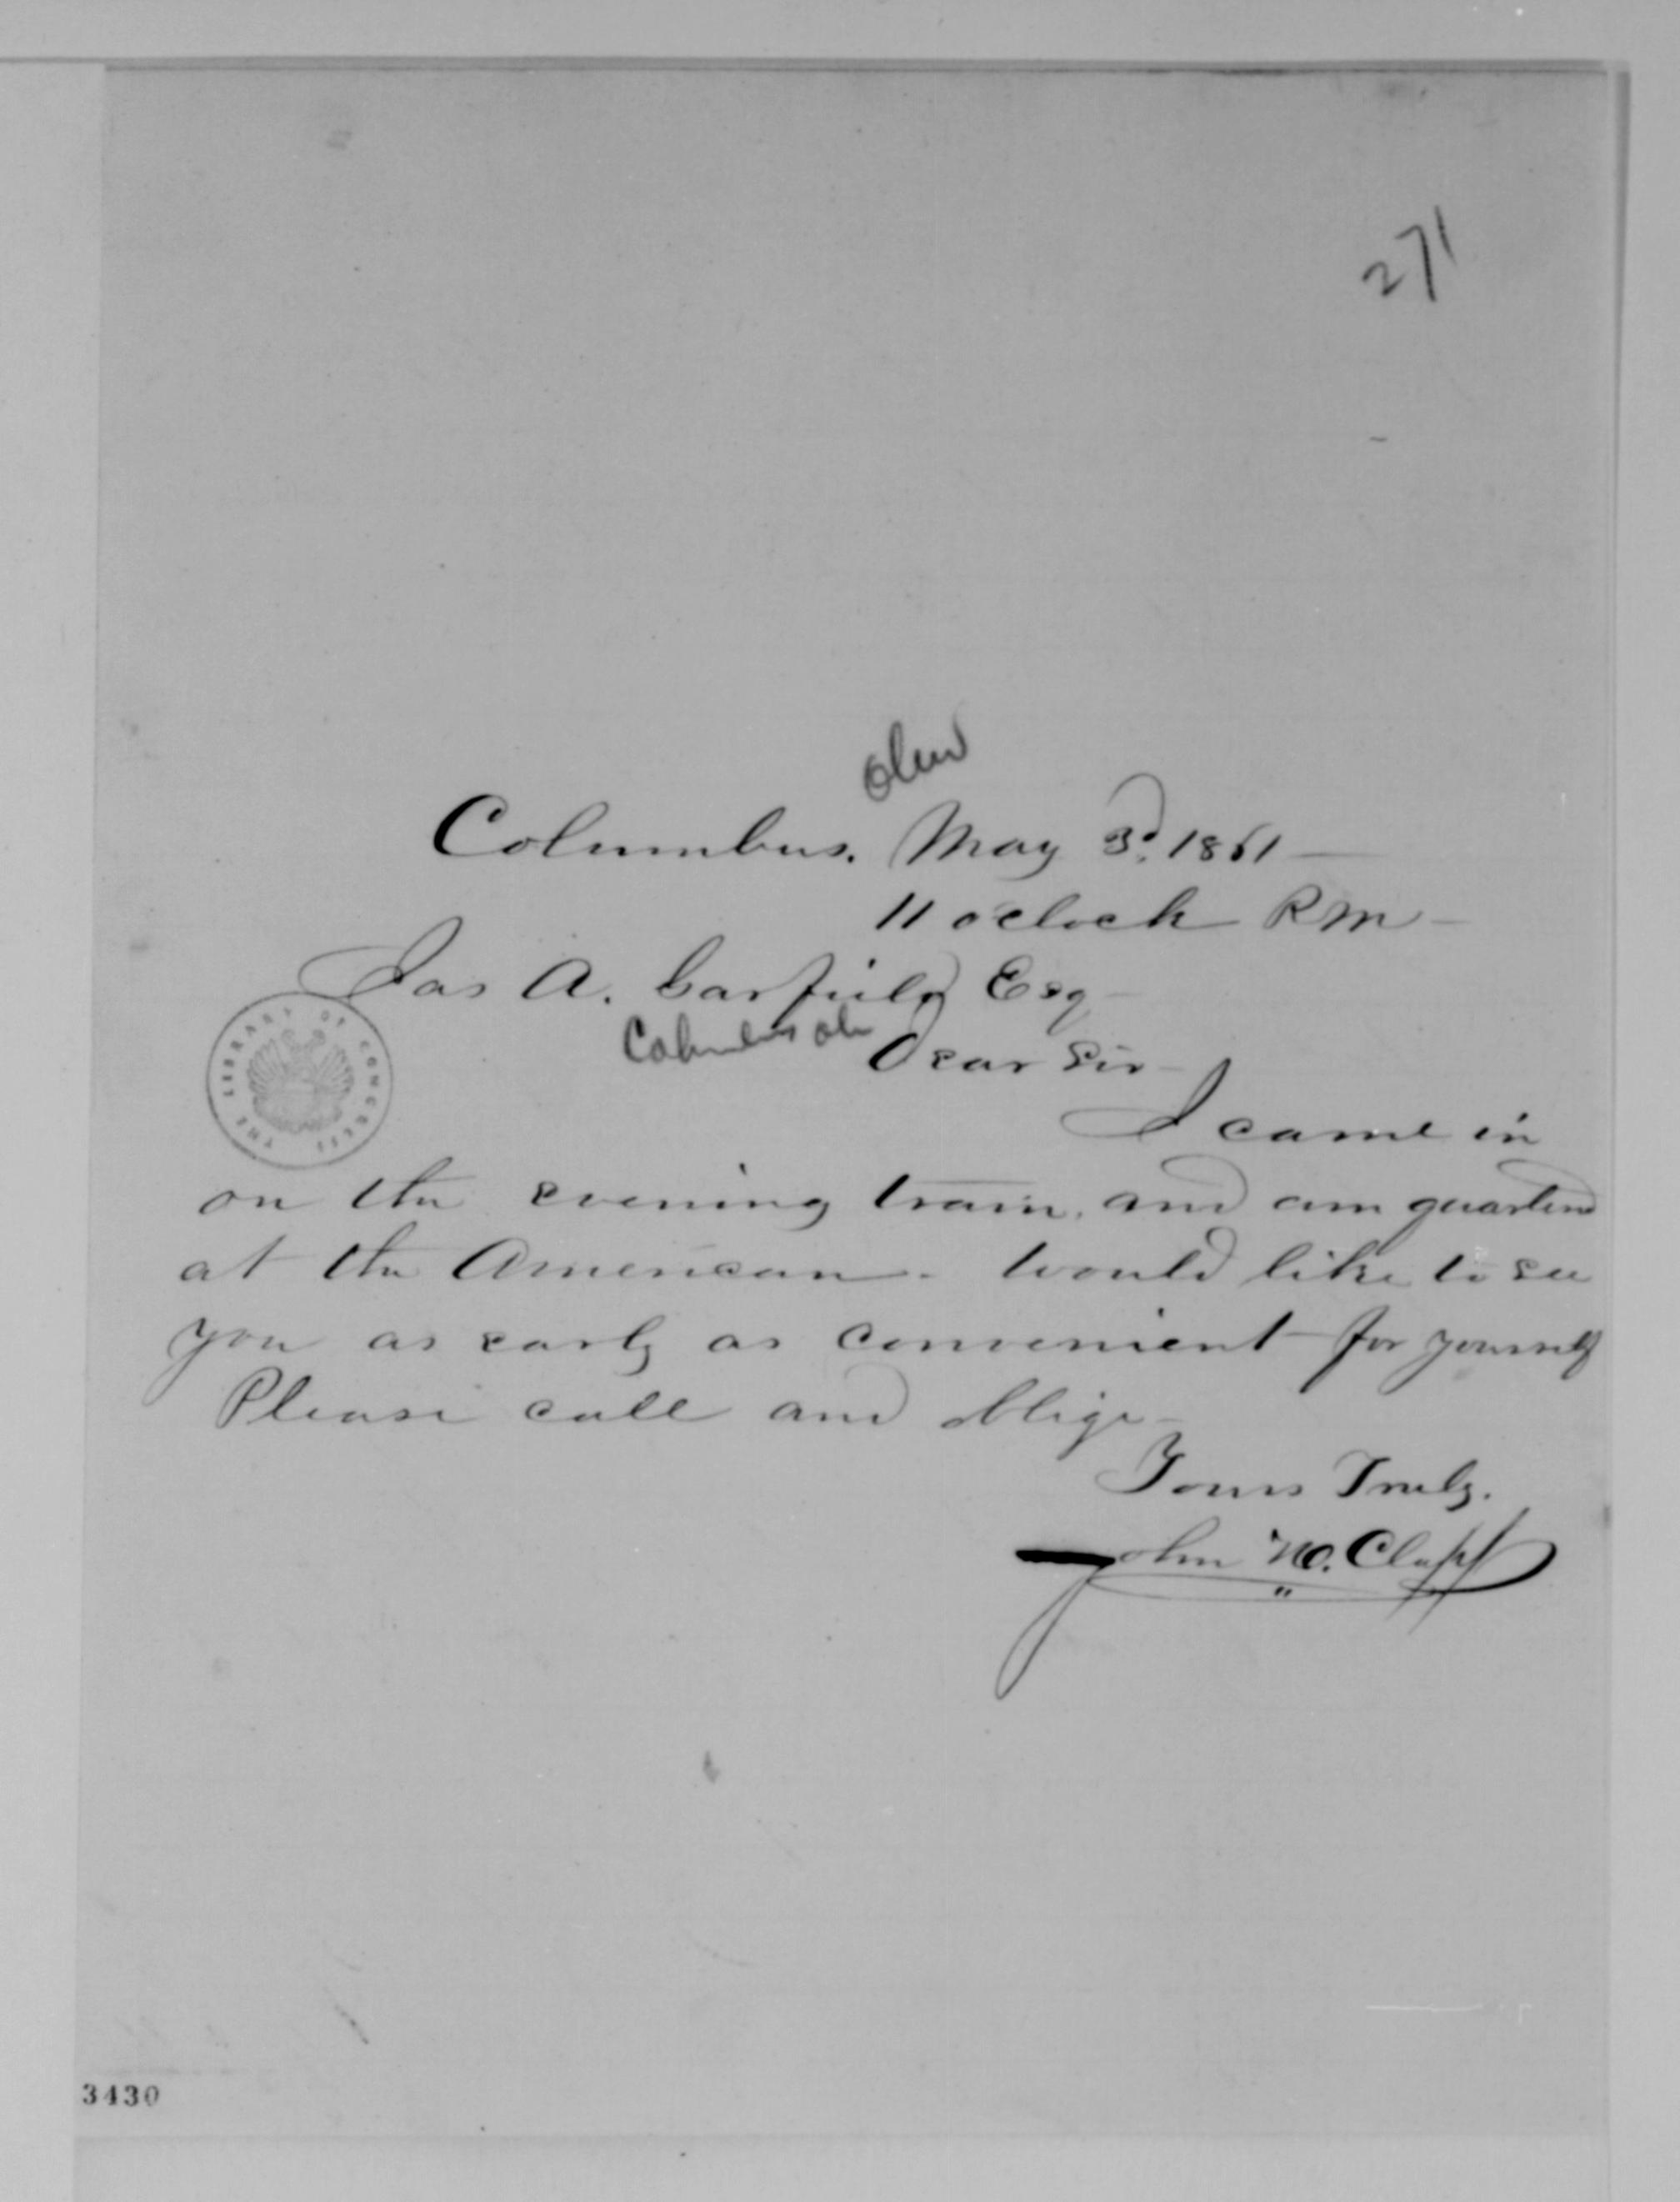 271
Ohio
Columbus. May 3d. 1861
11 oclock P.M
Jas A. Garfield Esq
Columbus Oh
Dear Sir
THE LIBRARY OF CONGRESS
I came in
on the evening train, and am quartered
at the American. Would like to see
you as early as convenient for yourself
Please call and oblige
Yours Truly.
John M. Clapp
3430